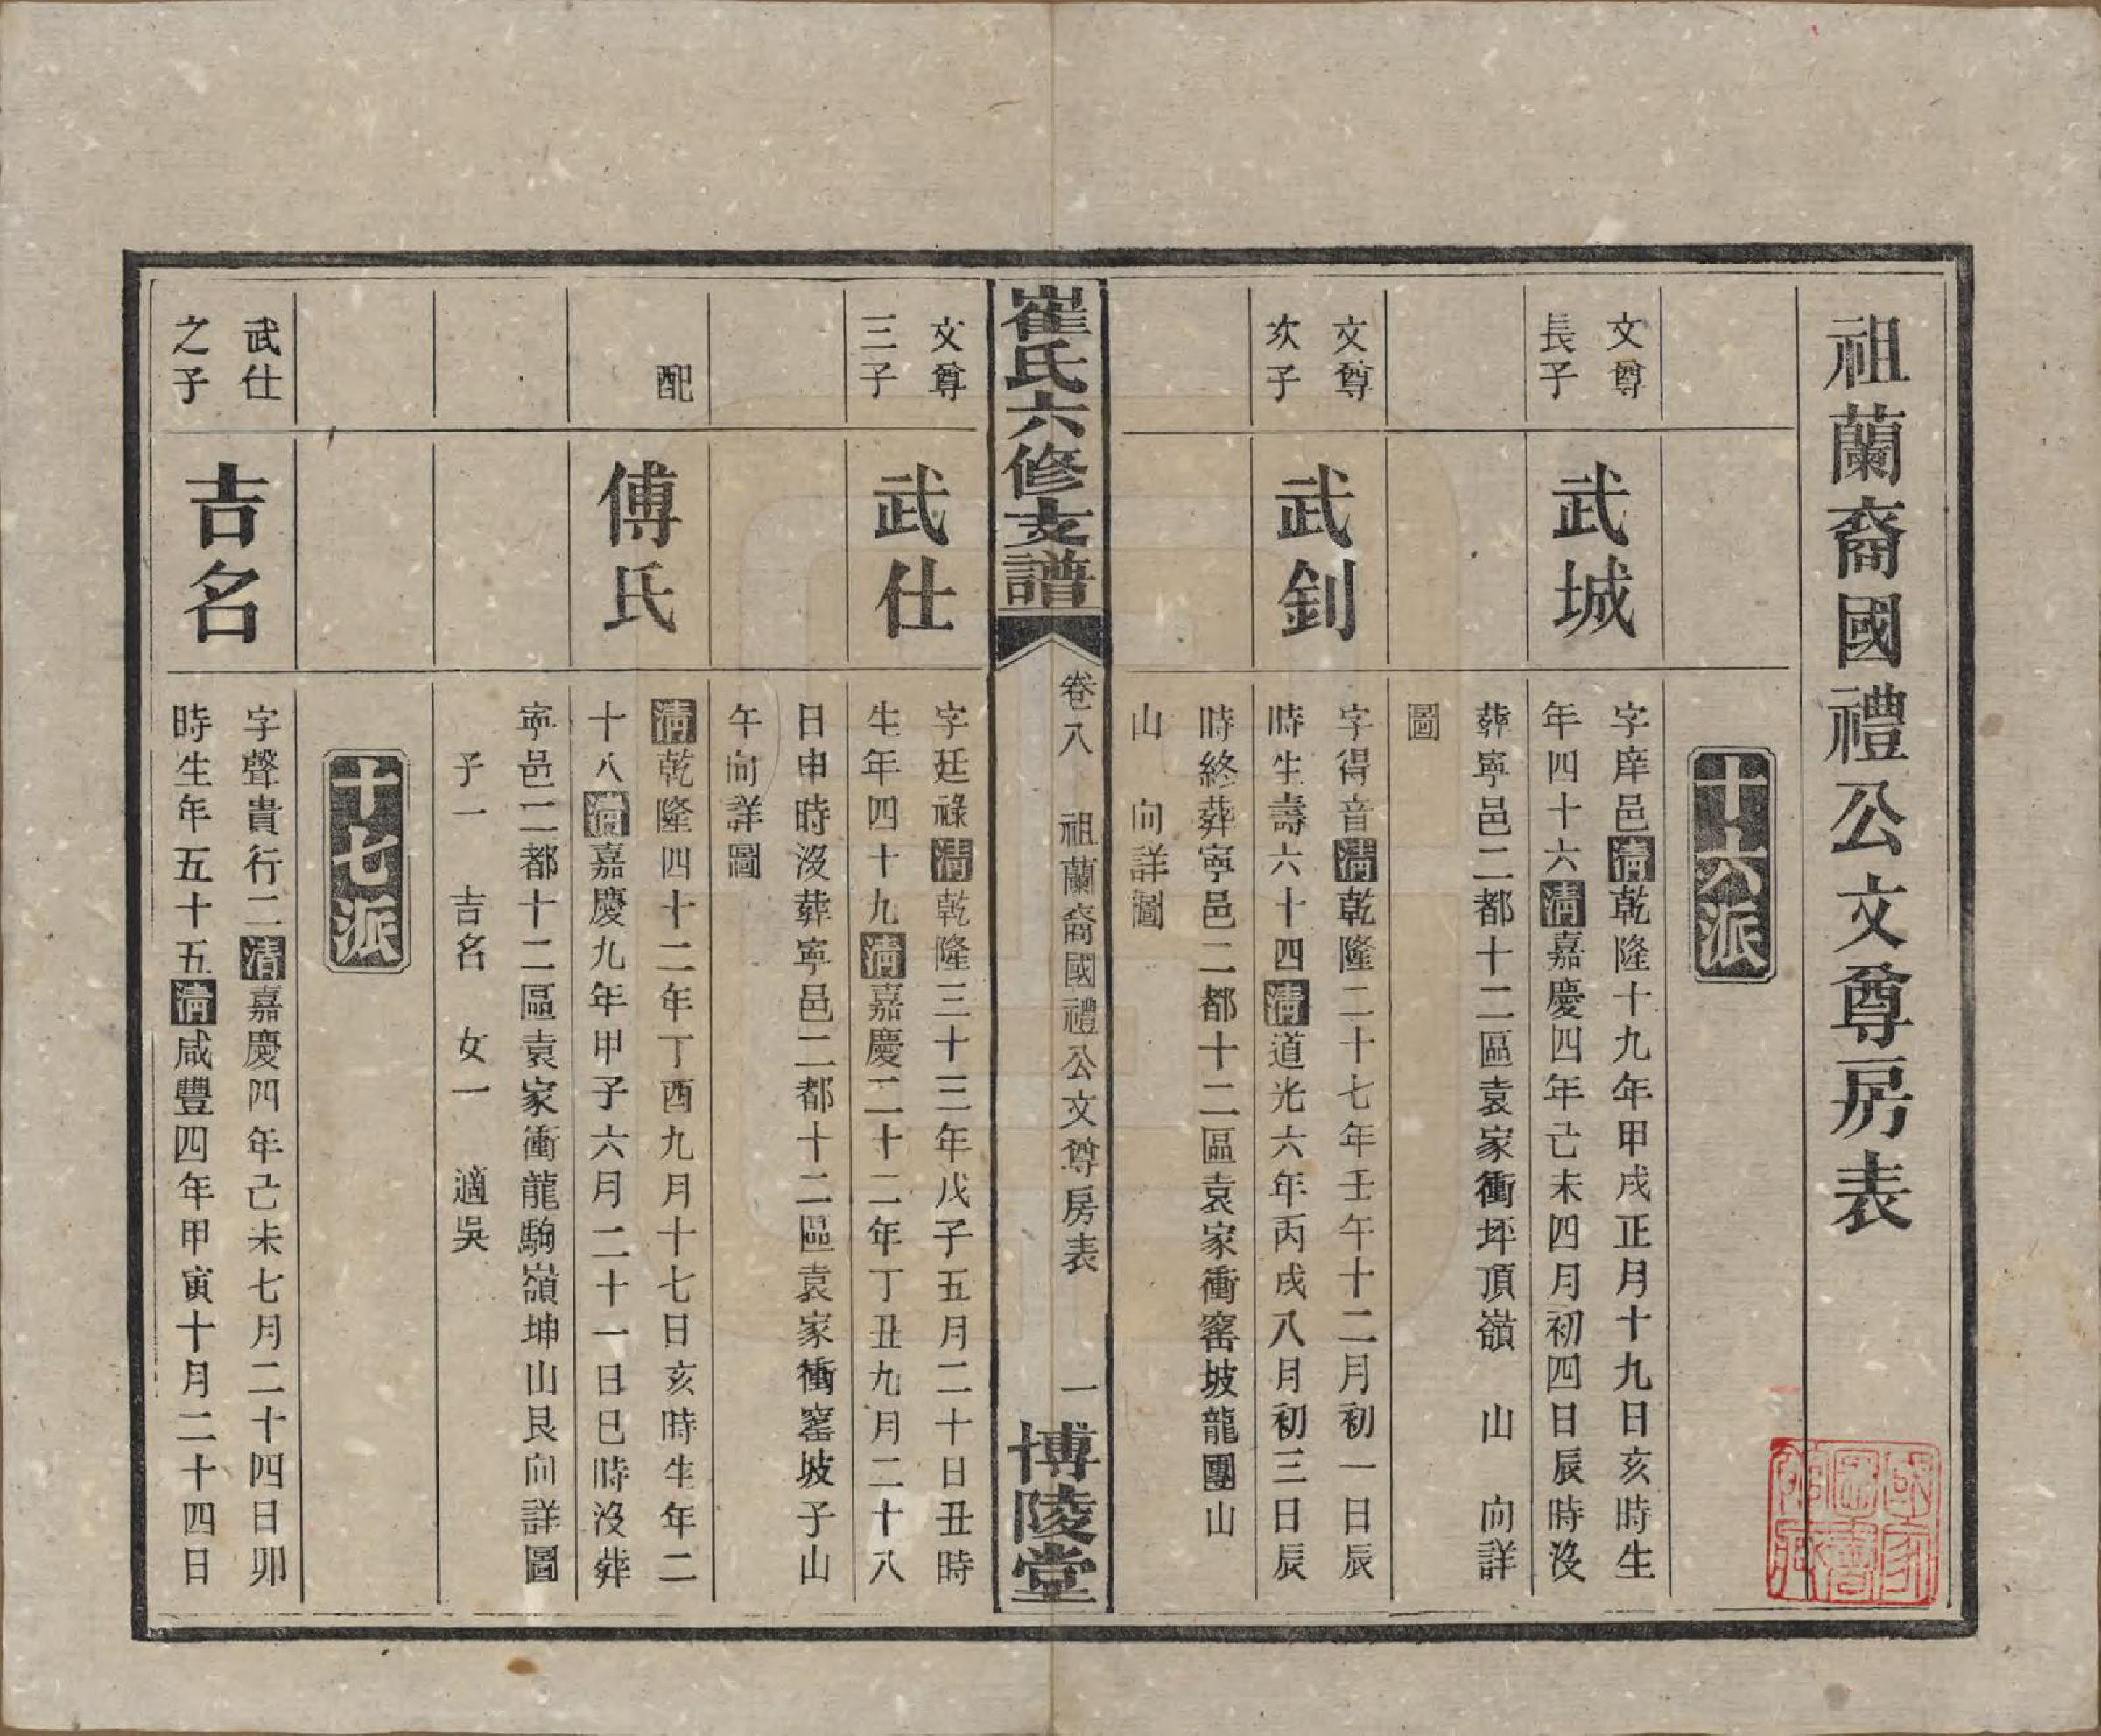 祖蘭裔國禮公文尊房表
十六派
文尊
長子
武城
字庠邑清乾隆十九年甲戌正月十九日亥時生
年四十六清嘉慶四年己未四月初四日辰時沒
葬寧邑二都十二區袁家衝坪頂嶺　山　向詳
圖
文尊
次子
武釗
字得音清乾隆二十七年壬午十二月初一日辰
時生壽六十四清道光六年丙戌八月初三日辰
時終葬寧邑二都十二區袁家衝窰坡龍團山
山　向詳圖
崔氏六修支譜
卷八　祖蘭裔國禮公文尊房表　一
博陵堂
文尊
三子
武仕
字廷祿清乾隆三十三年戊子五月二十日丑時
生年四十九清嘉慶二十二年丁丑九月二十八
日申時沒葬寧邑二都十二區袁家衝窰坡子山
午向詳圖
配
傅氏
清乾隆四十二年丁酉九月十七日亥時生年二
十八清嘉慶九年甲子六月二十一日巳時沒葬
寧邑二都十二區袁家衝龍駒嶺坤山艮向詳圖
子一　吉名　女一　適吳
十七派
武仕
之子
吉名
字聲貴行二清嘉慶四年己未七月二十四日卯
時生年五十五清咸豐四年甲寅十月二十四日